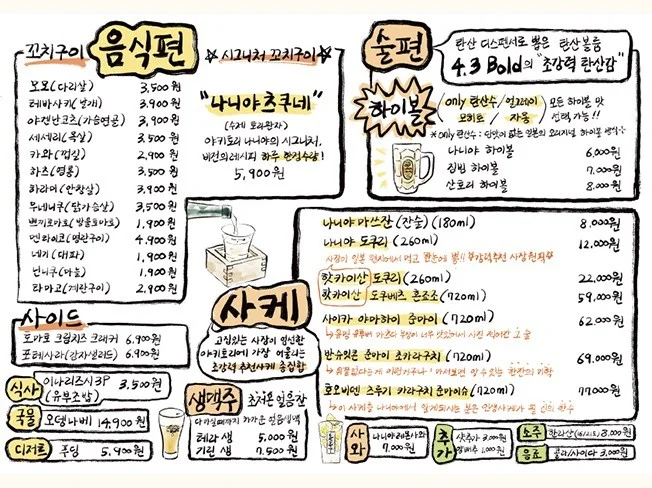 음식편
꼬치구이
모모(다리살) 3,500원
테바사키(날개) 3,900원
야겐난코츠(가슴연골) 3,900원
세세리(목살) 3,500원
카와(껍질) 2,900원
하츠(염통) 3,500원
하라미(안창살) 3,900원
무네니쿠(닭가슴살) 3,500원
쁘띠토마토(방울토마토) 1,900원
멘타이코(명란구이) 4,900원
네기(대파) 1,900원
닌니쿠(마늘) 1,900원
타마고(계란구이) 2,900원
☆시그니처 꼬치구이☆
"나니야츠쿠네"
(수제 토리완자)
야키토리 나니야의 시그니처,
비전의레시피 하루 한정수량!
5,900원
사이드
토마토 크림치즈 크래커 6,900원
포테사라(감자샐러드) 3,900원
식사
이나리즈시3P 3,500원
(유부초밥)
국물
오뎅나베 14,900원
디저트
푸딩 5,900원
술편
탄산 디스펜서로 뽑은 탄산볼륨
4.3 Bold의 "초강력 탄산감"
하이볼
only 탄산수/얼그레이/
모히토/자몽
모든 하이볼 맛
선택 가능!!
*only탄산수: 단맛이 없는 일본의 오리지널 하이볼 방식
나니야 하이볼 6,000원
짐빔 하이볼 7,000원
산토리 하이볼 8,000원
사케
고심있는 사장이 엄선한
야키토리에 가장 어울리는
초강력 추천사케 총집합
나니야 마쓰잔(잔술)(180ml) 8,000원
나니야 도쿠리(260ml) 12,000원
핫카이산 도쿠리(260ml) 22,000원
핫카이산 도쿠베츠 혼조소(720ml) 59,000원
사이카 야마하이 준마이(720ml) 62,000원
반슈잇콘 준마이 초카라구치(720ml) 69,000원
호오비덴 츠루기 카라구치 준마이슈(720ml) 77,000원
생맥주
초저온 얼음잔
테라 생 5,000원
기린 생 7,500원
사와
나니야레몬사와
7,000원
추가
샷추가 3,000원
1,000원
소주
한라산 8,000원
음료
콜라/사이다 3,000원